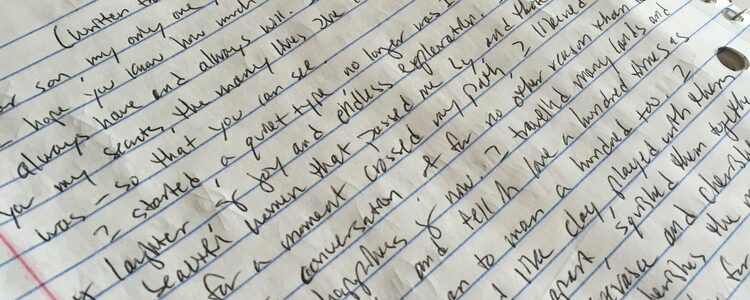 (written
son, my only one
I hope you know how much
always have and always will.
you my secrets, the many lives I've
was - so that you can see.
I started a quiet type no longer was I
of laughter & joy and endless exploration.
beautiful women that passed me by and those
for a moment crossed my path, I likened
conversation & for no other reason than
happiness & now. I travelled many lands and
and fell in love a hundred times as
man a hundred too. I
like clay played with them
apart, spirited them together
and cherished
the
for